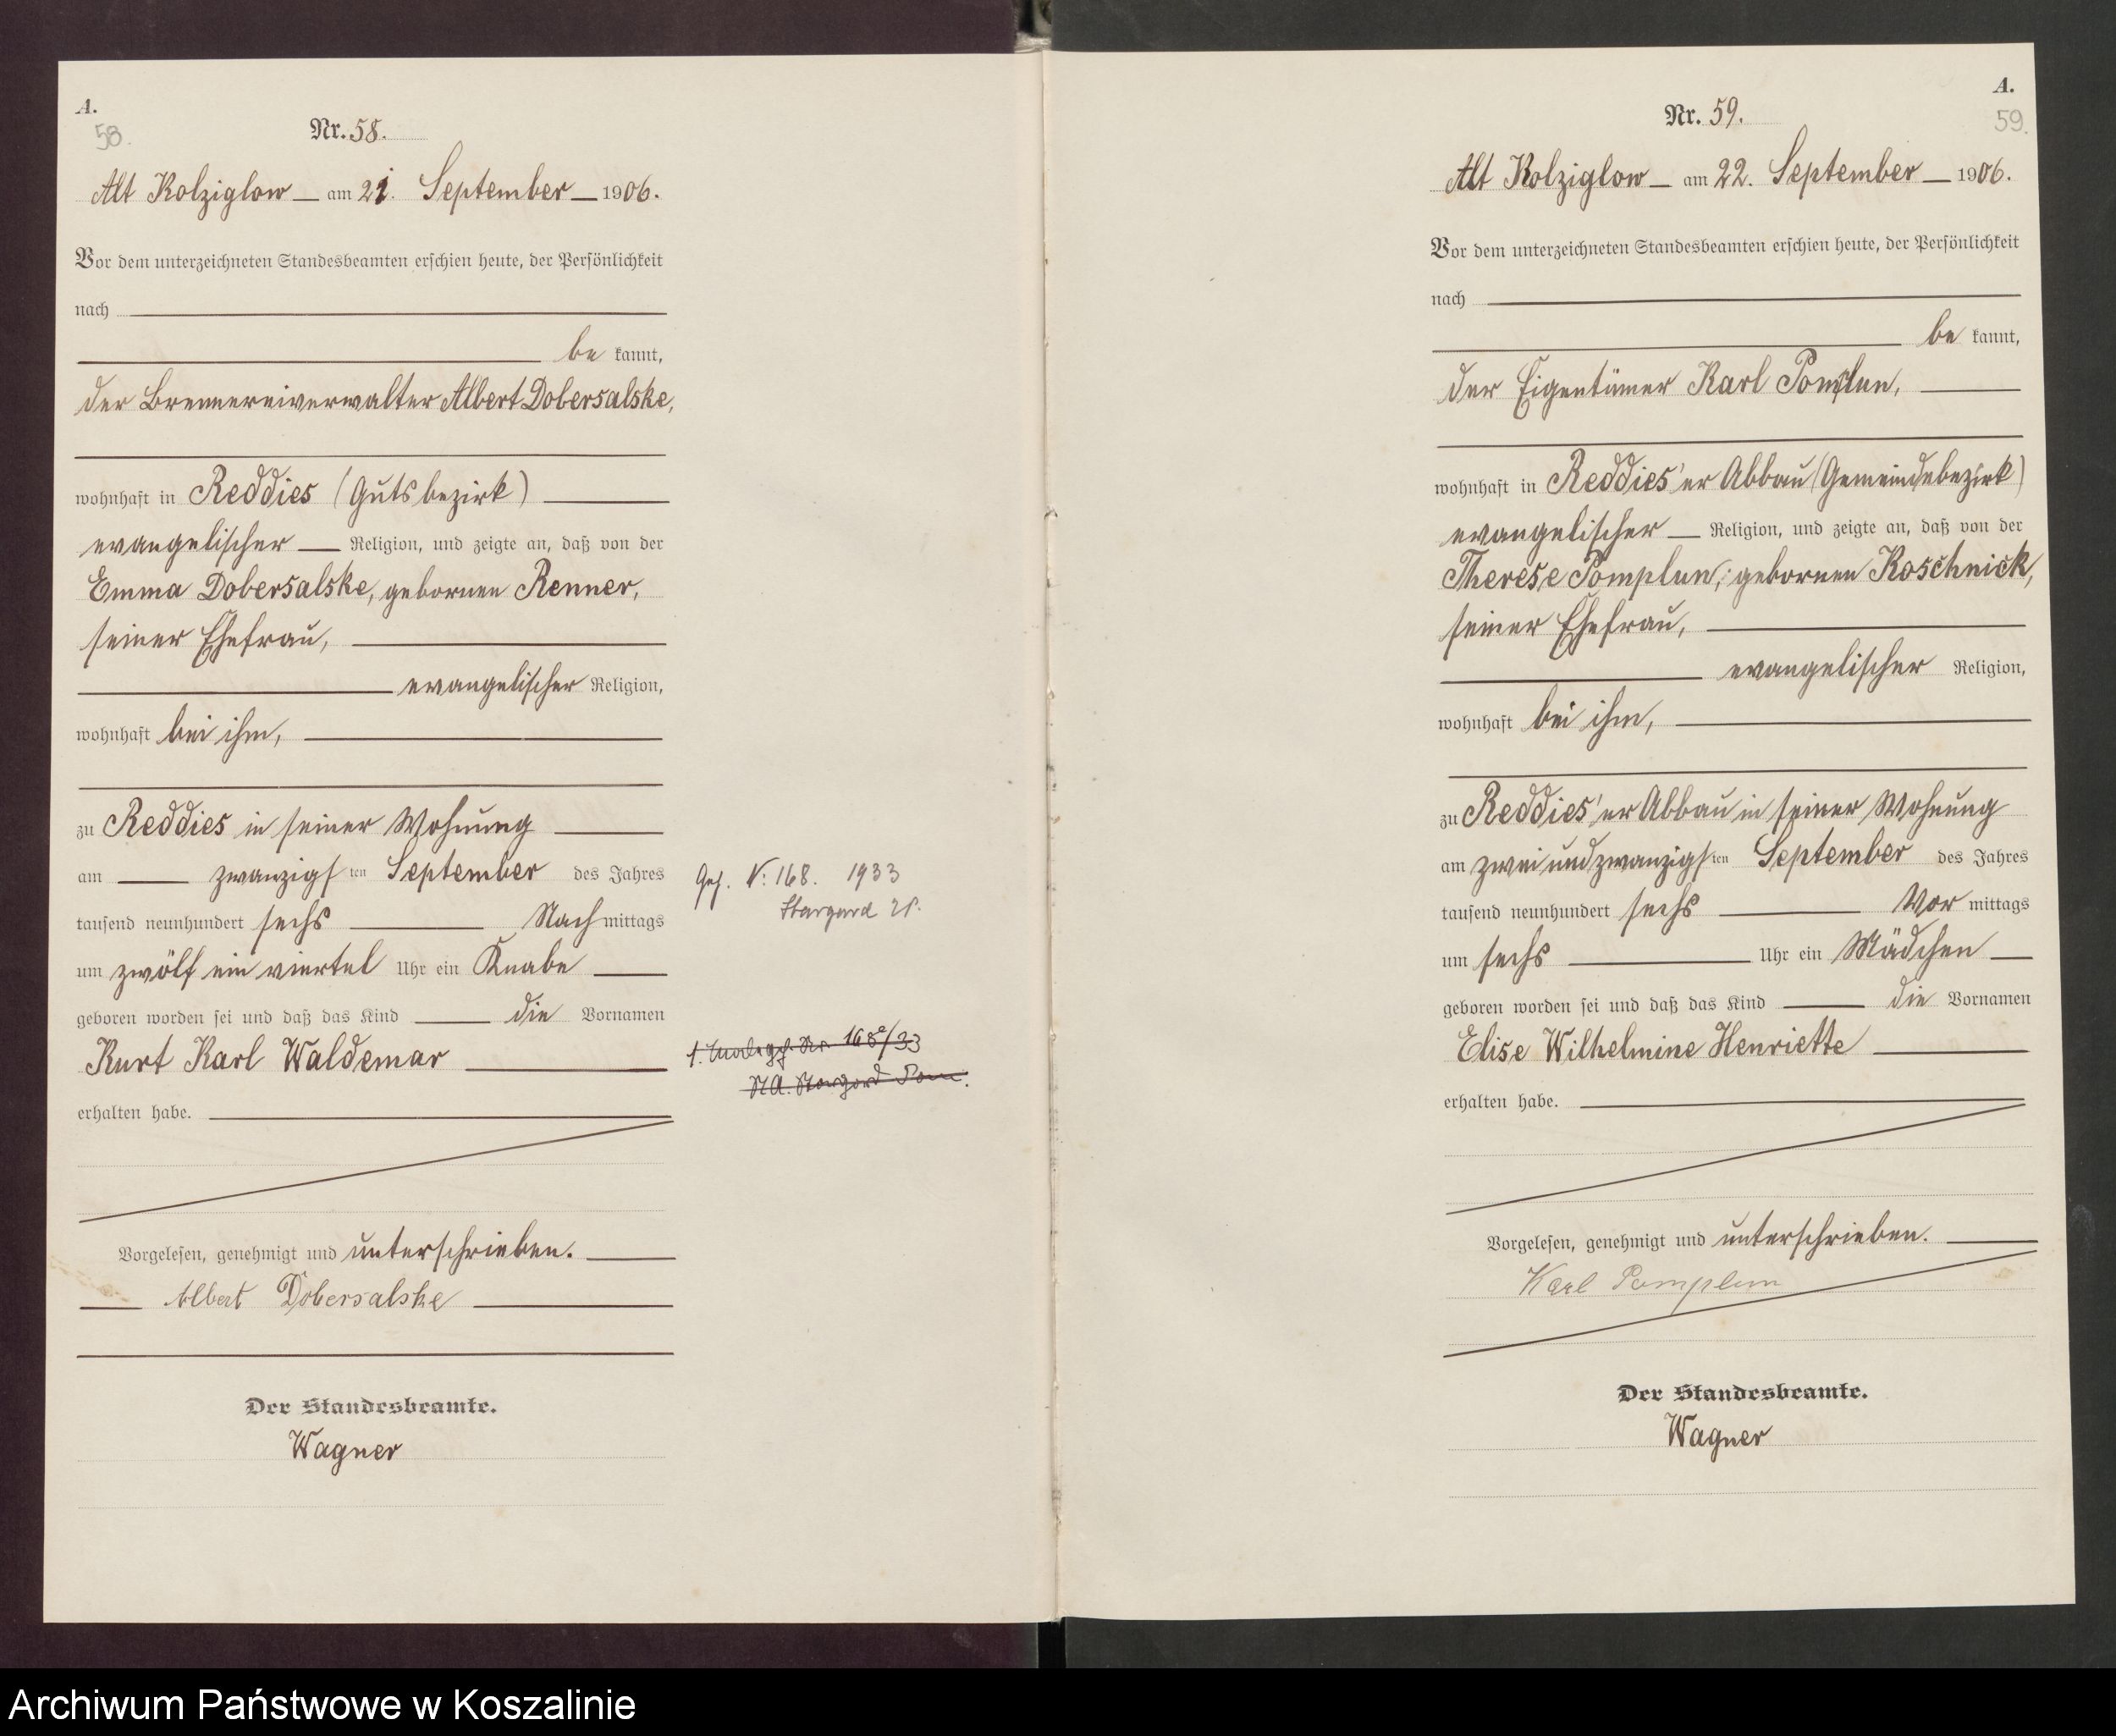 A.
58.
Nr. 58.
Alt Kolziglow am 21. September 1906.
Vor dem unterzeichneten Standesbeamten erschien heute, der Persönlichkeit
nach
be kannt,
der Brennereiverwalter Albert Dobersalske,
wohnhaft in Reddies (Gutsbezirk)
evangelischer Religion, und zeigte an, daß von der
Emma Dobersalske, gebornen Renner,
seiner Ehefrau,
evangelischer Religion,
wohnhaft bei ihm,
zu Reddies in seiner Wohnung
am zwanzigsten September des Jahres
tausend neunhundert sechs Nach mittags
um zwölf ein viertel Uhr ein Knabe
geboren worden sei und daß das Kind die Vornamen
Kurt Karl Waldemar
erhalten habe.
Vorgelesen, genehmigt und unterschrieben.
Albert Dobersalske
Der Standesbeamte.
Wagner
N: 168. 1933
Stargard
Nr. 168/33
StA. Stargard Pom.
A.
59.
Nr. 59.
Alt Kolziglow am 22. September 1906.
Vor dem unterzeichneten Standesbeamten erschien heute, der Persönlichkeit
nach
be kannt,
der Eigentümer Karl Pomplun,
wohnhaft in Reddies'er Abbau (Gemeindebezirk)
evangelischer Religion, und zeigte an, daß von der
Therese Pomplun, gebornen Koschnick,
seiner Ehefrau,
evangelischer Religion,
wohnhaft bei ihm,
zu Reddies'er Abbau in seiner Wohnung
am zweiundzwanzigsten September des Jahres
tausend neunhundert sechs Vor mittags
um sechs Uhr ein Mädchen
geboren worden sei und daß das Kind die Vornamen
Elise Wilhelmine Henriette
erhalten habe.
Vorgelesen, genehmigt und unterschrieben.
Karl Pomplun
Der Standesbeamte.
Wagner
Archiwum Państwowe w Koszalinie